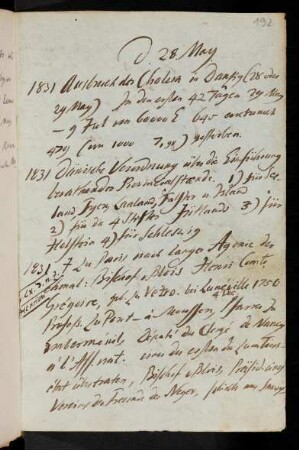 192
D. 28 May
1831 Ausbruch der Cholera in Danzig (28 oder
29 May) In den ersten 42 Tagen 29 May
– 9 Jul von 60000 E 640 erkrankt
479 (von 1000 7,98) gestorben.
1831 Dänische Verordnung über die Einführung
berathender Provinzialstände. 1) für See
land Fyen Laaland Falster u Island
2) für die 4 Stifter Jütlands 3) für
Holstein 4) für Schleswig
1831 † zu Paris nach langer Agonie der
Bischof v Blois Henri Comte
Gregoire, geb. zu Vetro. bei Luneville 1750
Profess. zu Pont-à-Mousson, Pfarrer zu
Embermenil, Deputé du Clergé de Nancy
à l'Ass. nat. einer der ersten die zum Tiers
état übertraten, Bischof v Blois, Präsident
Vereins der Freunde der Neger,